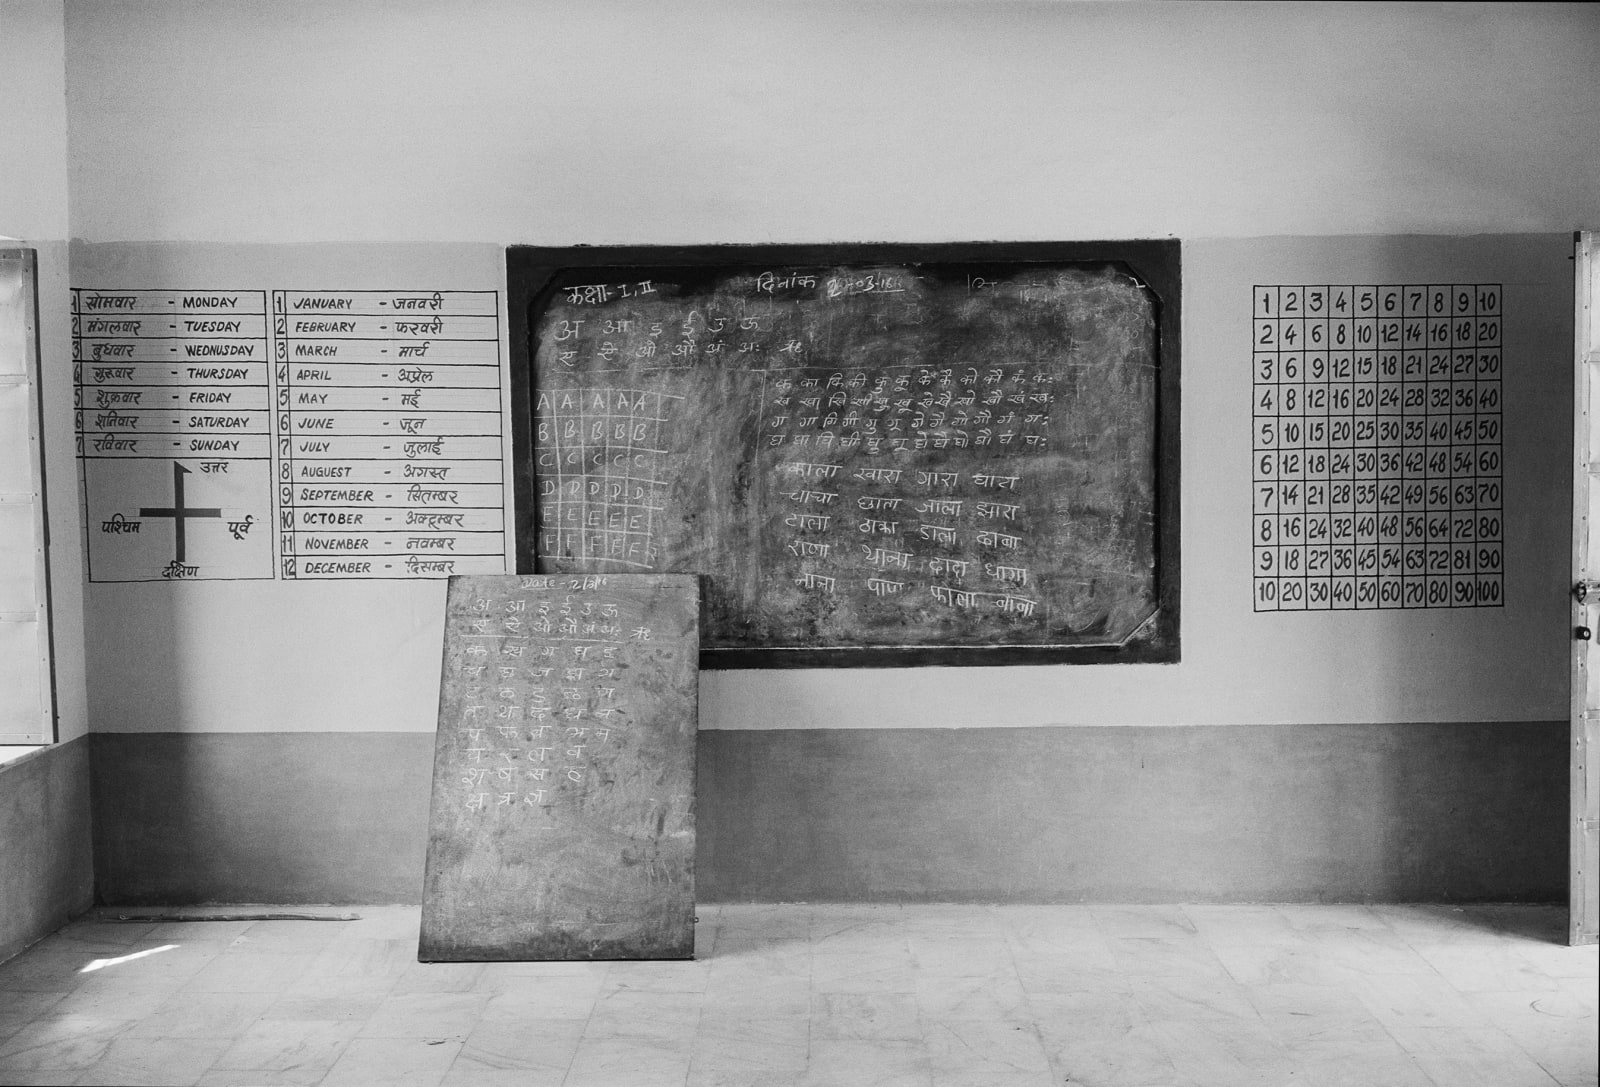 1 सोमवार - MONDAY
2 मंगलवार - TUESDAY
3 बुधवार - WEDNUSDAY
4 गुरुवार - THURSDAY
5 शुक्रवार - FRIDAY
6 शनिवार - SATURDAY
7 रविवार - SUNDAY
उत्तर
पश्चिम पूर्व
दक्षिण
1 JANUARY - जनवरी
2 FEBRUARY - फरवरी
3 MARCH - मार्च
4 APRIL - अप्रेल
5 MAY - मई
6 JUNE - जून
7 JULY - जुलाई
8 AUGUEST - अगस्त
9 SEPTEMBER - सितम्बर
10 OCTOBER - अक्टूम्बर
11 NOVEMBER - नवम्बर
12 DECEMBER - दिसम्बर
कक्षा - I, II दिनांक
अ आ इ ई उ ऊ
ए ऐ ओ औ अं अः ऋ
A A A A A
B B B B B
C C C C C
D D D D D
E E E E E
F F F F F
क का कि की कु कू के कै को कौ कं कः
ख खा खि खी खु खू खे खै खो खौ खं खः
ग गा गि गी गु गू गे गै गो गौ गं गः
घ घा घि घी घु घू घे घै घो घौ घं घः
काला खारा गारा घारा
चाचा छाता जाला झारा
टाला ठाका डाला ढाबा
थाना दादा धागा
नाना फाला बाबा
Date -
अ आ इ ई उ ऊ
ए ऐ ओ औ अं अः ऋ
क ख ग घ ङ
च छ ज झ ञ
ट ठ ड ढ ण
त थ द ध न
प फ ब भ म
य र ल व
श ष स ह
क्ष त्र ज्ञ
1 2 3 4 5 6 7 8 9 10
2 4 6 8 10 12 14 16 18 20
3 6 9 12 15 18 21 24 27 30
4 8 12 16 20 24 28 32 36 40
5 10 15 20 25 30 35 40 45 50
6 12 18 24 30 36 42 48 54 60
7 14 21 28 35 42 49 56 63 70
8 16 24 32 40 48 56 64 72 80
9 18 27 36 45 54 63 72 81 90
10 20 30 40 50 60 70 80 90 100